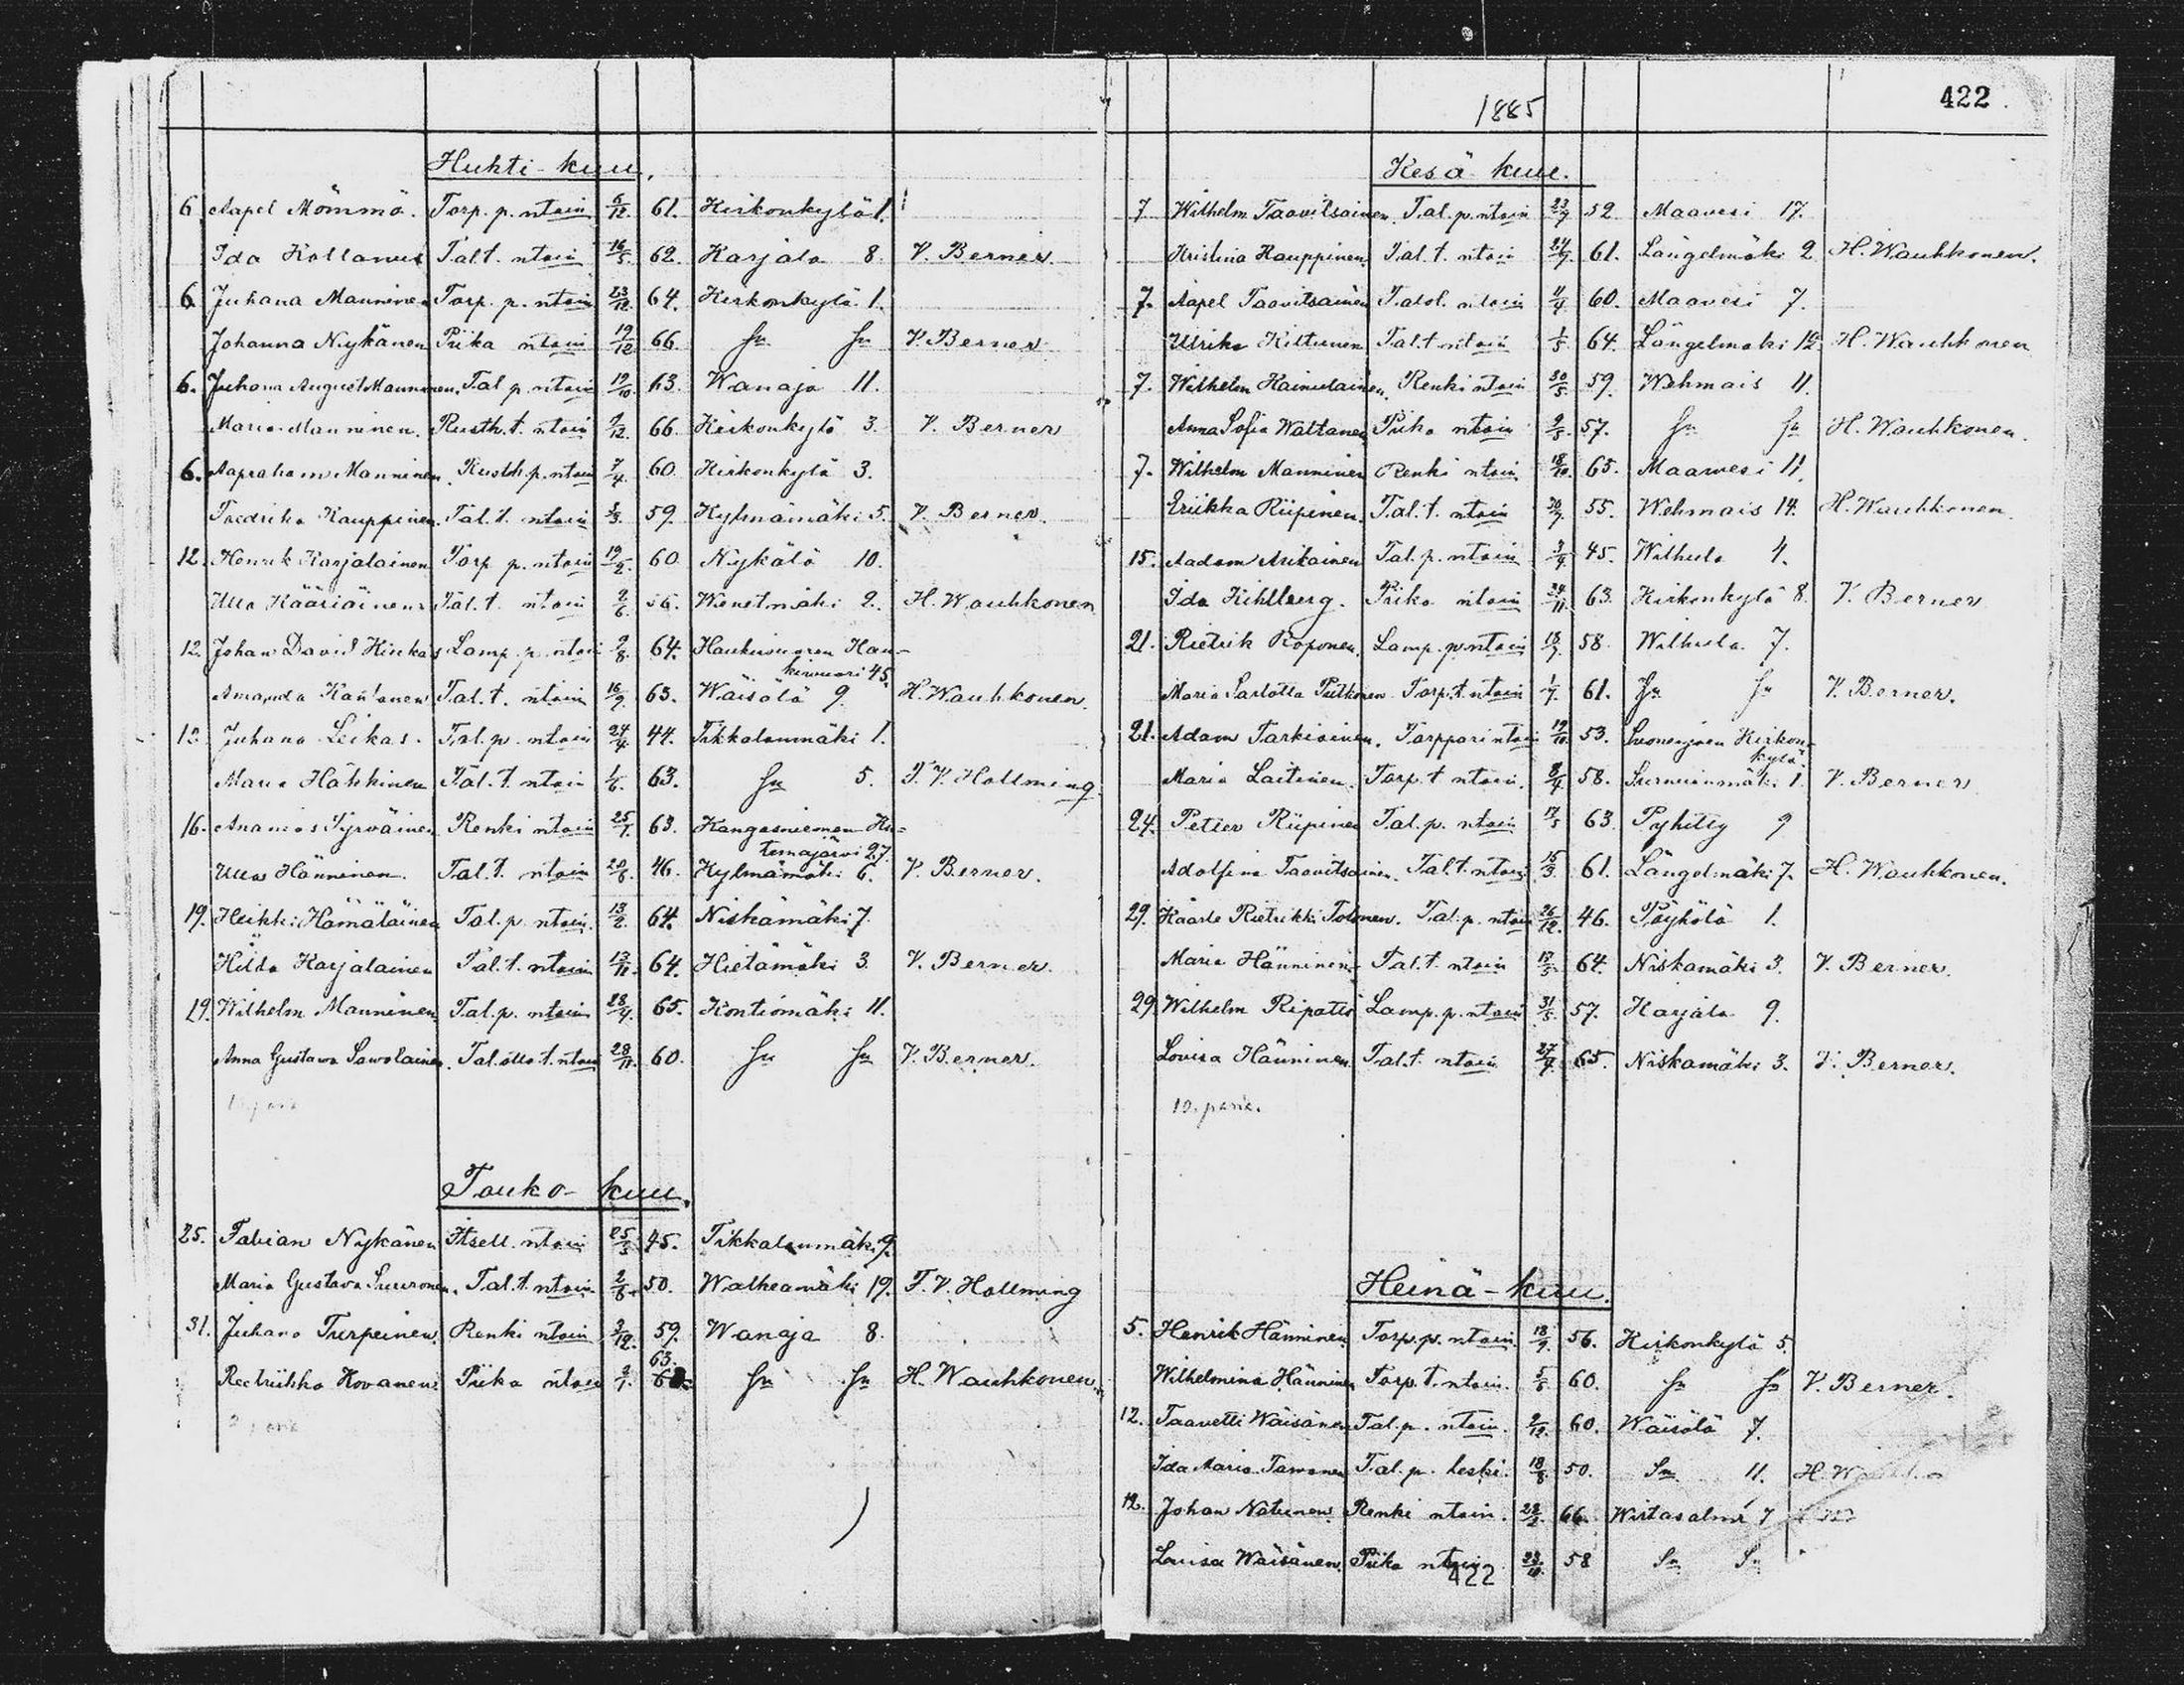 Huhti-kuu.
6 Aapel Mömmö. Torp. p. ntoin 5/12. 61. Kirkonkylä 1.
Ida Kollanus Tal.t. ntoin 16/5. 62. Karjala 8. V. Berner.
6 Juhana Manninen Torp. p. ntoin 23/12. 64. Kirkonkylä 1.
Johanna Nykänen Piika ntoin 19/12 66. Sn Sn V. Berner
6. Juhana August Manninen. Tal. p. ntoin 19/10. 63. Wanaja 11.
Maria Manninen. Rusth. t. ntoin 9/12. 66. Kirkonkylä 3. V. Berner
6. Aapraham Manninen. Rusth. p. ntoin 7/4. 60. Kirkonkylä 3.
Fredrika Kauppinen. Tal. t. ntoin 59. Kylmämäki 5. V. Berner.
12. Henrik Karjalainen Torp p. ntoin 19/2. 60. Nykälä 10.
Ulla Kääriäinen Tal. t. ntoin 2/6. 56. Wenetmäki 2. H. Wauhkonen
12. Johan David Kinkas Lamp. p. ntoin 9/8. 64. Haukivuoren Hau-
kivuori 45.
Amanda Kantanen Tal. t. ntoin 16/9. 63. Wäisälä 9. H. Wauhkonen.
Juhana Leikas. Tal. p. ntoin 24/4. 44. Tikkalanmäki 1.
Maria Häkkinen Tal. t. ntoin 1/6. 63. Sn 5. F. V. Hollming
16. Ananias Tyrväinen Renki ntoin 25/1. 63. Kangasniemen Ku-
temajärvi 27.
Ulla Hänninen. Tal. t. ntoin 46. Kylmämäki 6. V. Berner.
19. Heikki Hämäläinen Tal. p. ntoin. 13/2. 64. Niskämäki 7.
Hilda Karjalainen Tal. t. ntoin 13/11. 64. Hietämäki 3. V. Berner.
19. Wilhelm Manninen Tal. p. ntoin 28/4. 65. Kontiomäki 11.
Anna Gustava Sawolainen. Tal. ntoin 28/11. 60. Sn Sn V. Berner.
Touko-kuu.
25. Fabian Nykänen Itsell. ntoin 25/3 45. Tikkalanmäki 9.
Maria Gustava Suuronen. Tal. t. ntoin 2/6. 50. Walkeamäki 19. F. V. Hollming
31. Juhana Turpeinen Renki ntoin 3/12. 59. Wanaja 8.
63.
Reetriikka Kovanen Piika ntoin 2/1. Sn Sn H. Wauhkonen.
2 paria
422
1885
Kesä-kuu.
7 Wilhelm Taavitsainen. Tal. p. ntoin 23/7 52 Maavesi 17.
Kristina Kauppinen Tal. t. ntoin 24/7. 61. Längelmäki 2 H. Wauhkonen.
7. Aapel Taavitsainen Talol. ntoin 11/4 60. Maavesi 7.
Ulrika Kittunen Tal. t. ntoin 1/5 64. Längelmäki 12. H. Wauhkonen
7. Wilhelm Kainulainen. Renki ntoin 30/5. 59. Wehmais 11.
Anna Sofia Wattanen Piika ntoin 9/5. 57. Sn Sn H. Wauhkonen.
7. Wilhelm Manninen Renki ntoin 18/10. 65. Maavesi 11.
Eriikka Riipinen. Tal. t. ntoin 55. Wehmais 14. H. Wauhkonen.
15. Aadam Asikainen Tal. p. ntoin 3/9. 45. Wilhula 4.
Ida Kihlberg. Piika ntoin 24/11. 63. Kirkonkylä 8. V. Berner
21. Rietrik Roponen. Lamp. p. ntoin 18/7. 58. Wilhula. 7.
Maria Sarlotta Pulkonen Torp. t. ntoin 1/7. 61. Sn Sn V. Berner.
21. Adam Tarkiainen. Torppari ntoin 19/10 53. Suonenjoen Kirkon-
kylä.
Maria Laitinen. Torp. t. ntoin. 8/4 58. Surnuinmäki 1 V. Berner
24. Petter Riipinen Tal. p. ntoin 63. Pyhitty 9
Adolfina Taavitsainen. Tal. t. ntoin 15/3. 61. Längelmäki 7. H. Wauhkonen.
29. Kaarle Rietrikki Tolonen. Tal. p. ntoin 26/12. 46. Pöyhölä 1.
Maria Hänninen Tal. t. ntoin 64. Niskamäki 3. V. Berner.
29. Wilhelm Ripatti Lamp. p. ntoin 31/5. 57. Harjala 9.
Lovisa Hänninen Tal. t. ntoin 27/9. 65. Niskamäki 3. V. Berner.
10. paria.
Heinä-kuu.
5. Henrik Hänninen Torp. p. ntoin. 18/9. 56. Kirkonkylä 5.
Wilhelmina Hänninen Torp. t. ntoin. 5/6 60. Sn Sn V. Berner.
12. Taavetti Wäisänen Tal. p. ntoin. 2/12. 60. Wäisälä 7.
Ida Maria Tawonen Tal. p. leski. 18/8. 50. Sn 11.
12. Johan Natunen Renki ntoin. 66. Wirtasalmi 7
Louisa Wäisänen Piika ntoin 58 Sn Sn
422